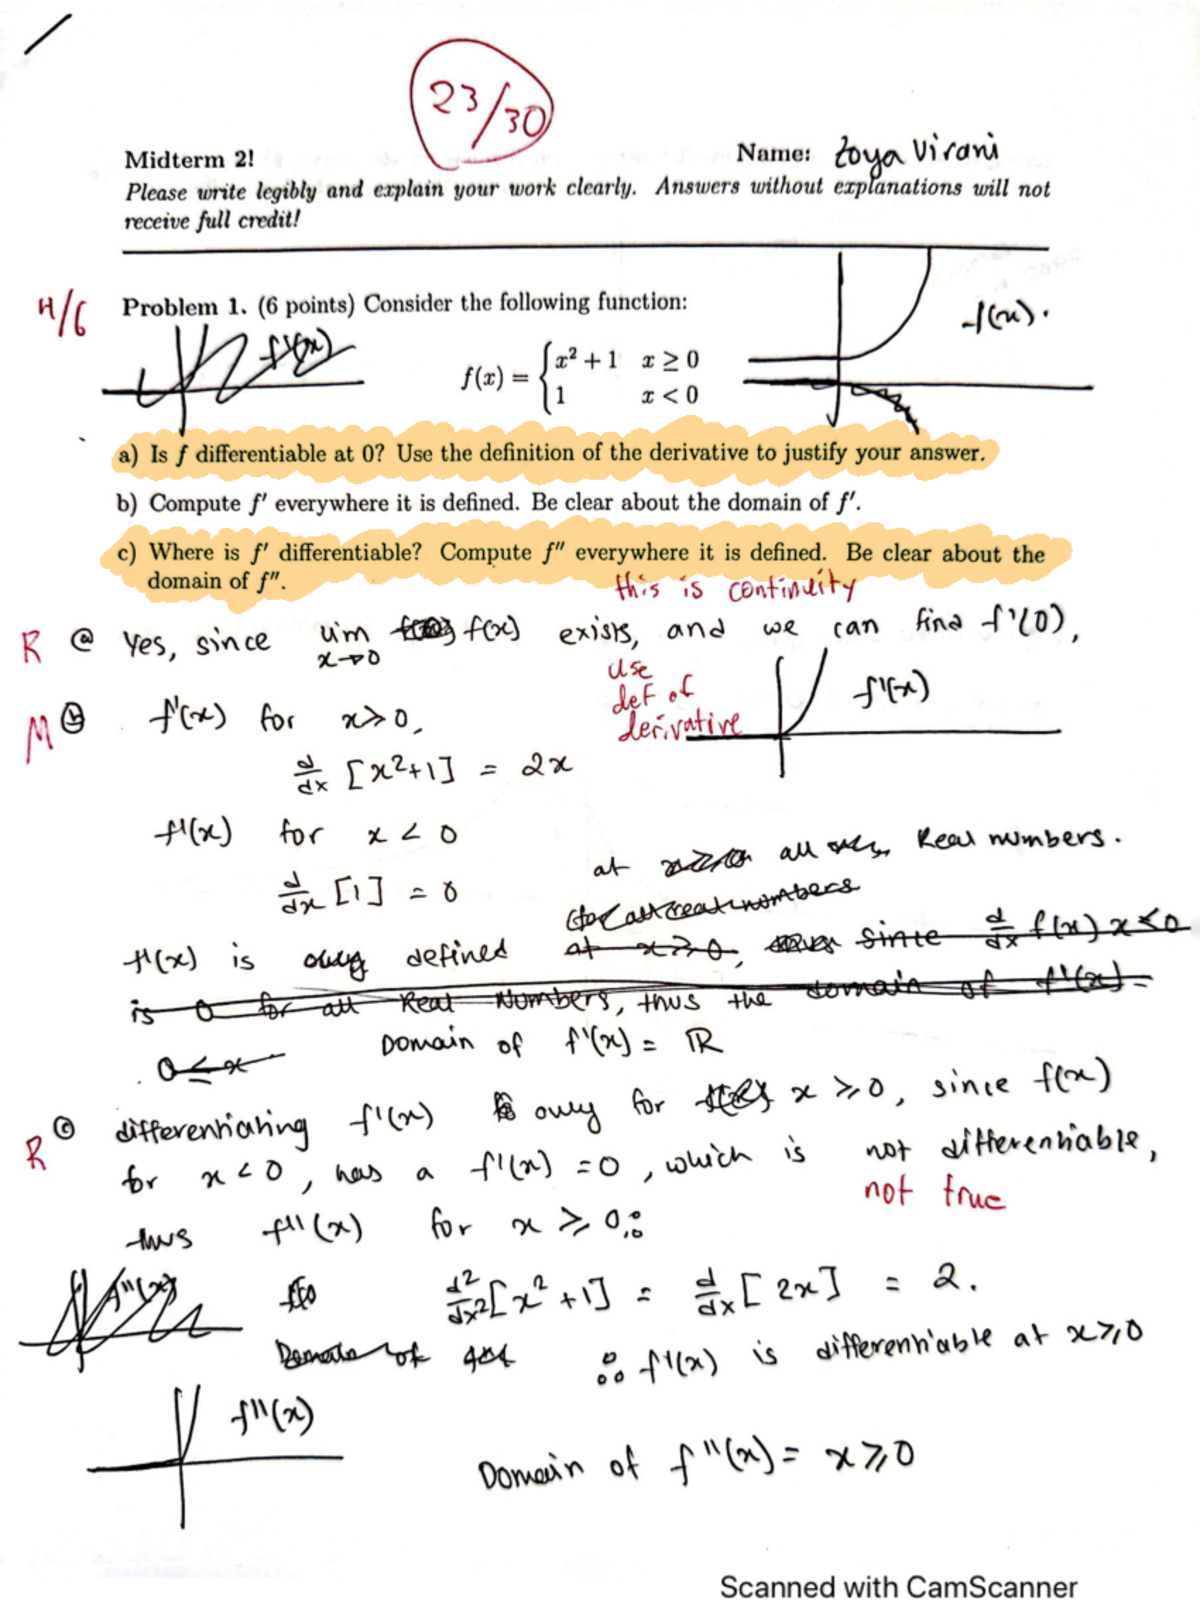 23/30
Midterm 2!
Name: Zoya Virani
Please write legibly and explain your work clearly. Answers without explanations will not
receive full credit!
4/6
Problem 1. (6 points) Consider the following function:
f(x).
f'(x)
f(x) = { x² + 1 x ≥ 0
1 x < 0
a) Is f differentiable at 0? Use the definition of the derivative to justify your answer.
b) Compute f' everywhere it is defined. Be clear about the domain of f'.
c) Where is f' differentiable? Compute f'' everywhere it is defined. Be clear about the
domain of f''.
this is continuity
R (a) Yes, since lim x→0 f(x) exists, and we can find f'(0),
use
def of
derivative
f'(x)
M (b) f'(x) for x>0,
d/dx [x²+1] = 2x
f'(x) for x < 0
d/dx [1] = 0
at all Real numbers.
for all real numbers
f'(x) is only defined at x≥0, since d/dx f(x) x<0
is 0 for all Real Numbers, thus the domain of f'(x) =
0≤x
Domain of f'(x) = ℝ
R (c) differentiating f'(x) only for x ≥ 0, since f(x)
for x < 0, has a f'(x) = 0, which is not differentiable,
not true
thus f''(x) for x ≥ 0 ∴
f''(x)
d²/dx² [x² + 1] = d/dx [2x] = 2.
Domain of
∴ f'(x) is differentiable at x≥0
f''(x)
Domain of f''(x) = x≥0
Scanned with CamScanner